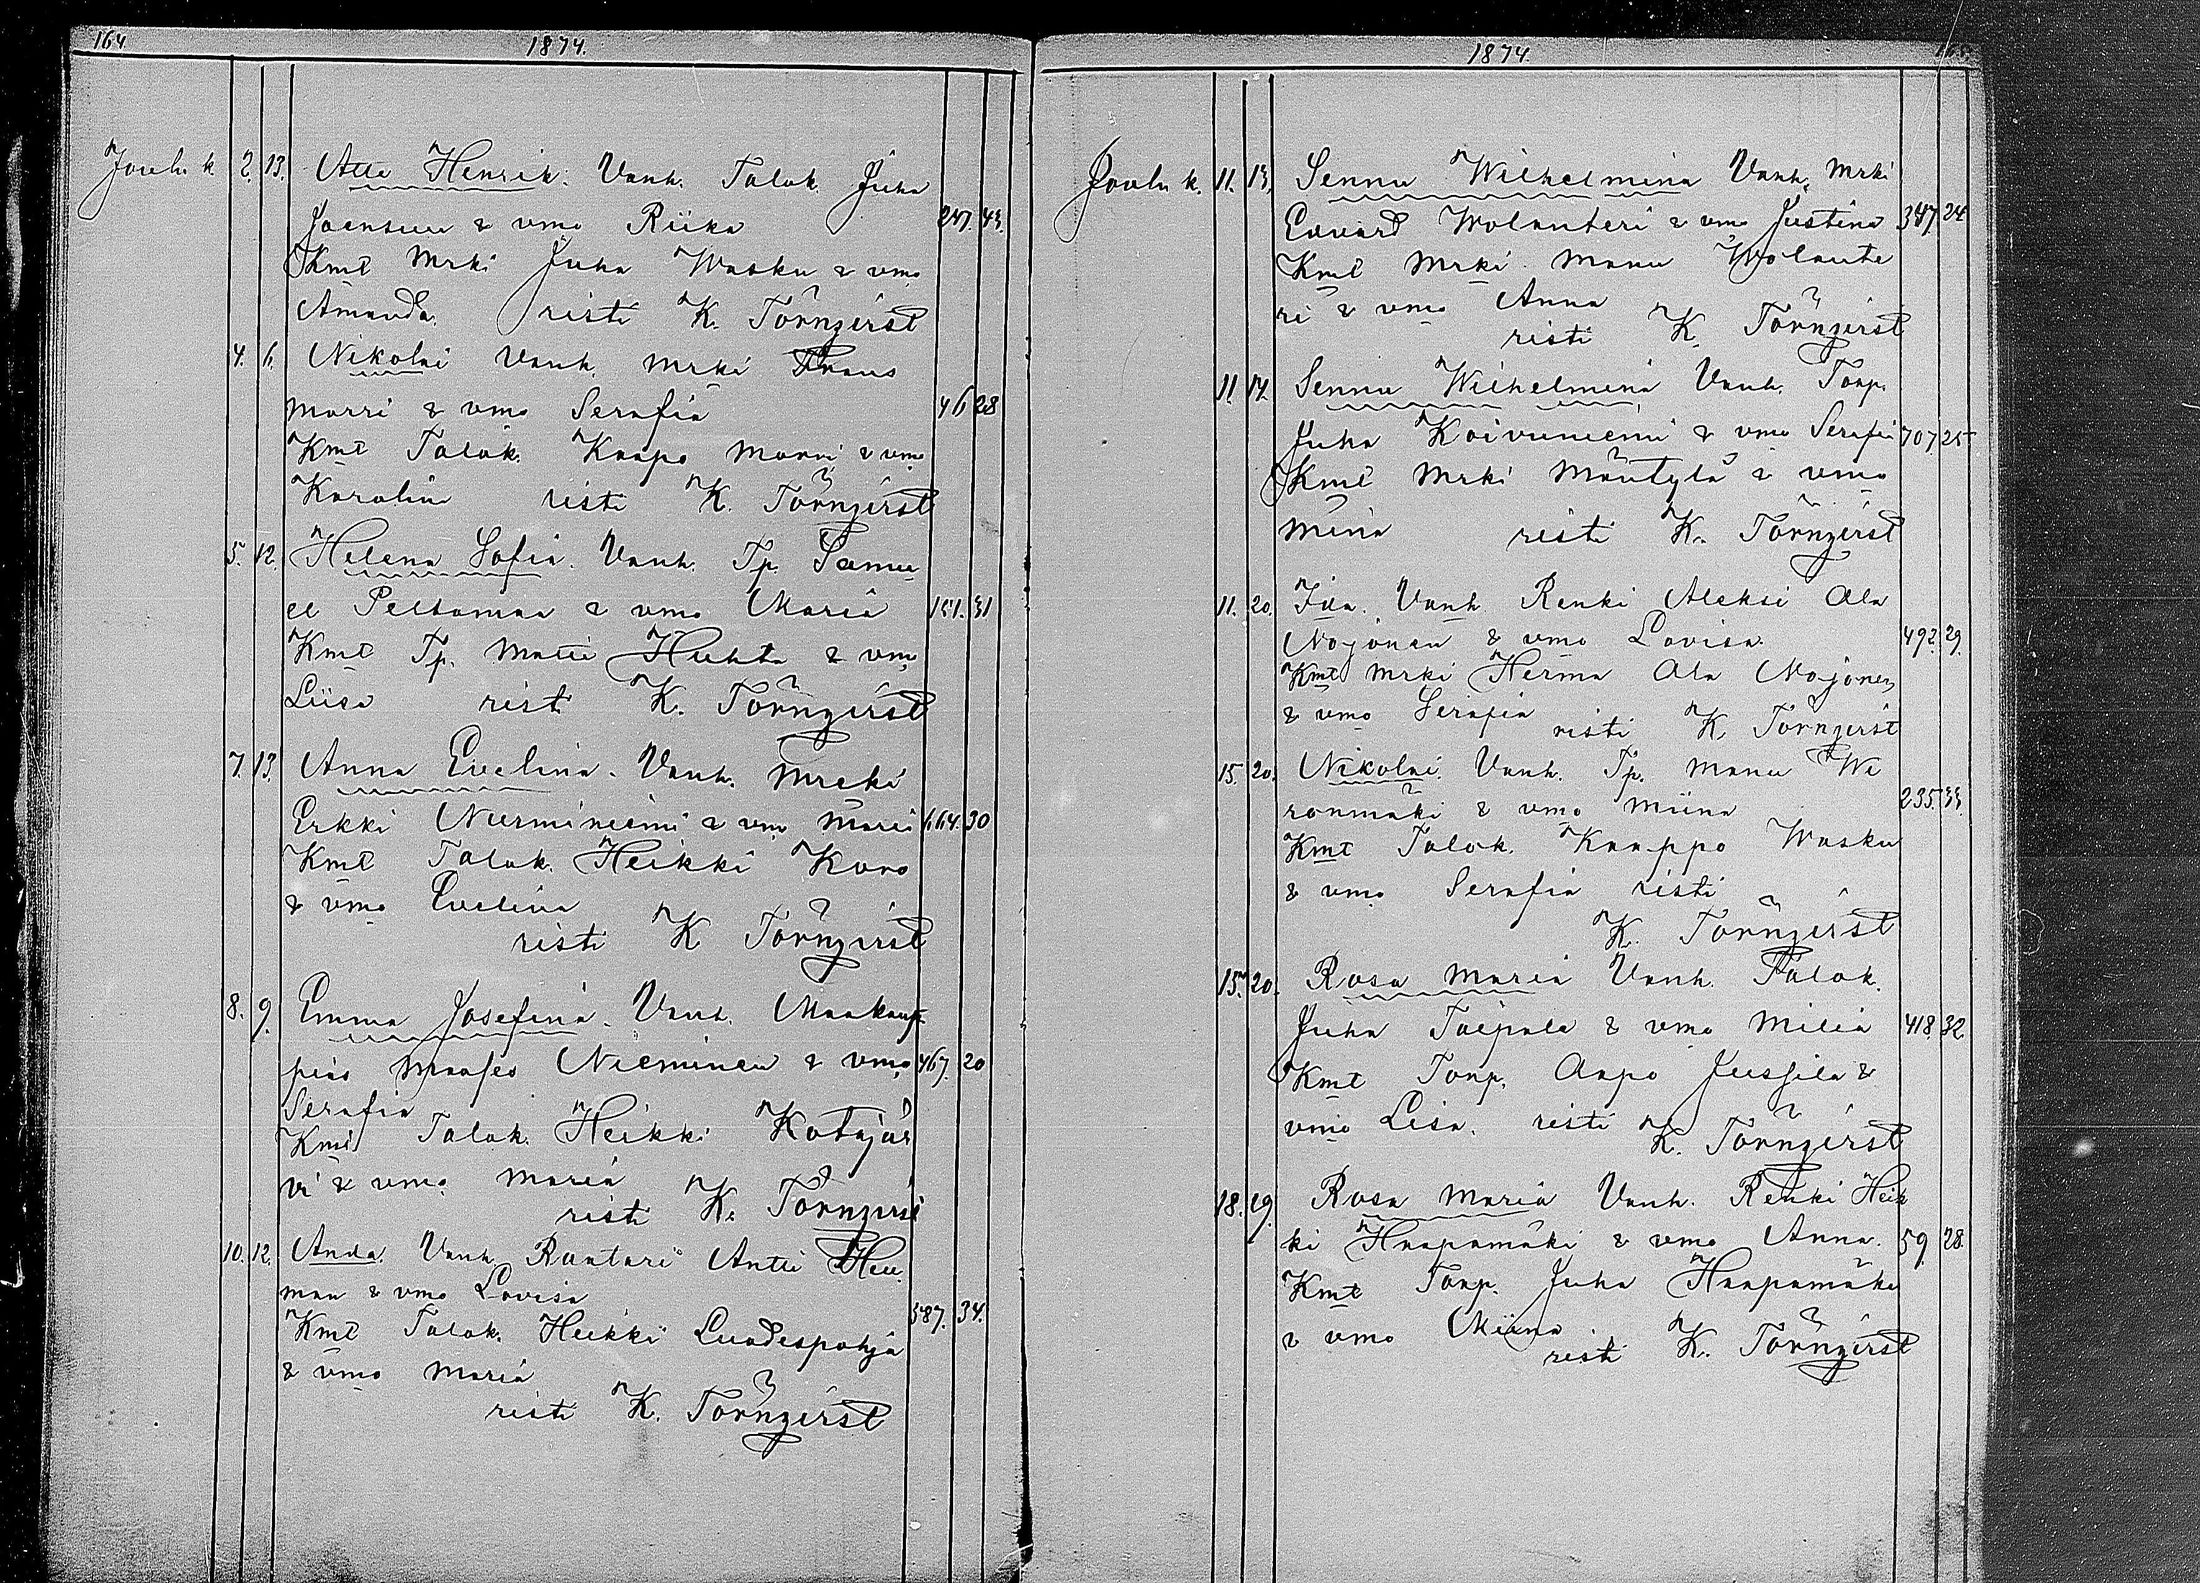 164.
1874.
Joulu k. 2. 13. Atte Henrik. Vanh. Talok. Juha
Joensuu & vmo Riika 247. 43.
Kmt Mrki Juha Wasku & vmo
Amanda. risti K. Törnqvist
4. 6. Nikolai Vanh. Mrki Frans
Marri & vmo Serafia 46 28
Kmt Talok. Kaapo Marri & vmo
Karolina risti K. Törnqvist
5. 12. Helena Sofia. Vanh. Tp. Samu
el Peltomaa & vmo Maria 151. 31
Kmt Tp. Matti Huhta & vmo
Liisa risti K. Törnqvist
7. 13. Anna Evelina. Vanh. Mrki
Erkki Nurminiemi & vmo Maria 664. 30
Kmt Talok. Heikki Koro
& vmo Evelina
risti K Törnqvist
8. 9. Emma Josefina. Vanh. Maakaup
pias Nieminen & vmo 467. 20
Serafia
Kmt Talok. Heikki Kotajär
vi & vmo. Maria
risti K. Törnqvist
10. 12. Anda. Vanh. Räntäri Antti Hei
man & vmo Lovisa
Kmt Talok. Heikki Luodespohja 387. 34.
& vmo Maria
risti K. Törnqvist
1874.
165.
Joulu k. 11. 13. Sennu Wilhelmina Vanh. Mrki
Edvard Wolanteri & vmo Justina 347. 24
Kmt Mrki. Manu Wolante
ri & vmo Anna
risti K. Törnqvist
11. 14. Sennu Wilhelmina Vanh. Torp.
Juha Koivuniemi & vmo Serafia 707 25
Kmt Mrki Mäntylä & vmo
Mina risti K. Törnqvist
11. 20. Ida. Vanh. Renki Aleksi Ala
Nojonen & vmo Lovisa. 492. 29.
Kmt Mrki Herma Ala Nojonen
& vmo Serafia risti K. Törnqvist
15. 20. Nikolai. Vanh. Tp. Manu We
ronmäki & vmo Miina 235. 33.
Kmt Talok. Kaappo Wasku
& vmo Serafia risti
K. Törnqvist
15. 20. Rosa Maria Vanh. Talok.
Juha Taipale & vmo Milia 418. 32
Kmt Torp. Aapo Jussila &
vmo Lisa. risti K. Törnqvist
18. 19. Rosa Maria Vanh. Renki Heik
ki Haapamäki & vmo Anna. 59. 28.
Kmt Torp. Juha Haapamäki
& vmo Miina
risti K. Törnqvist